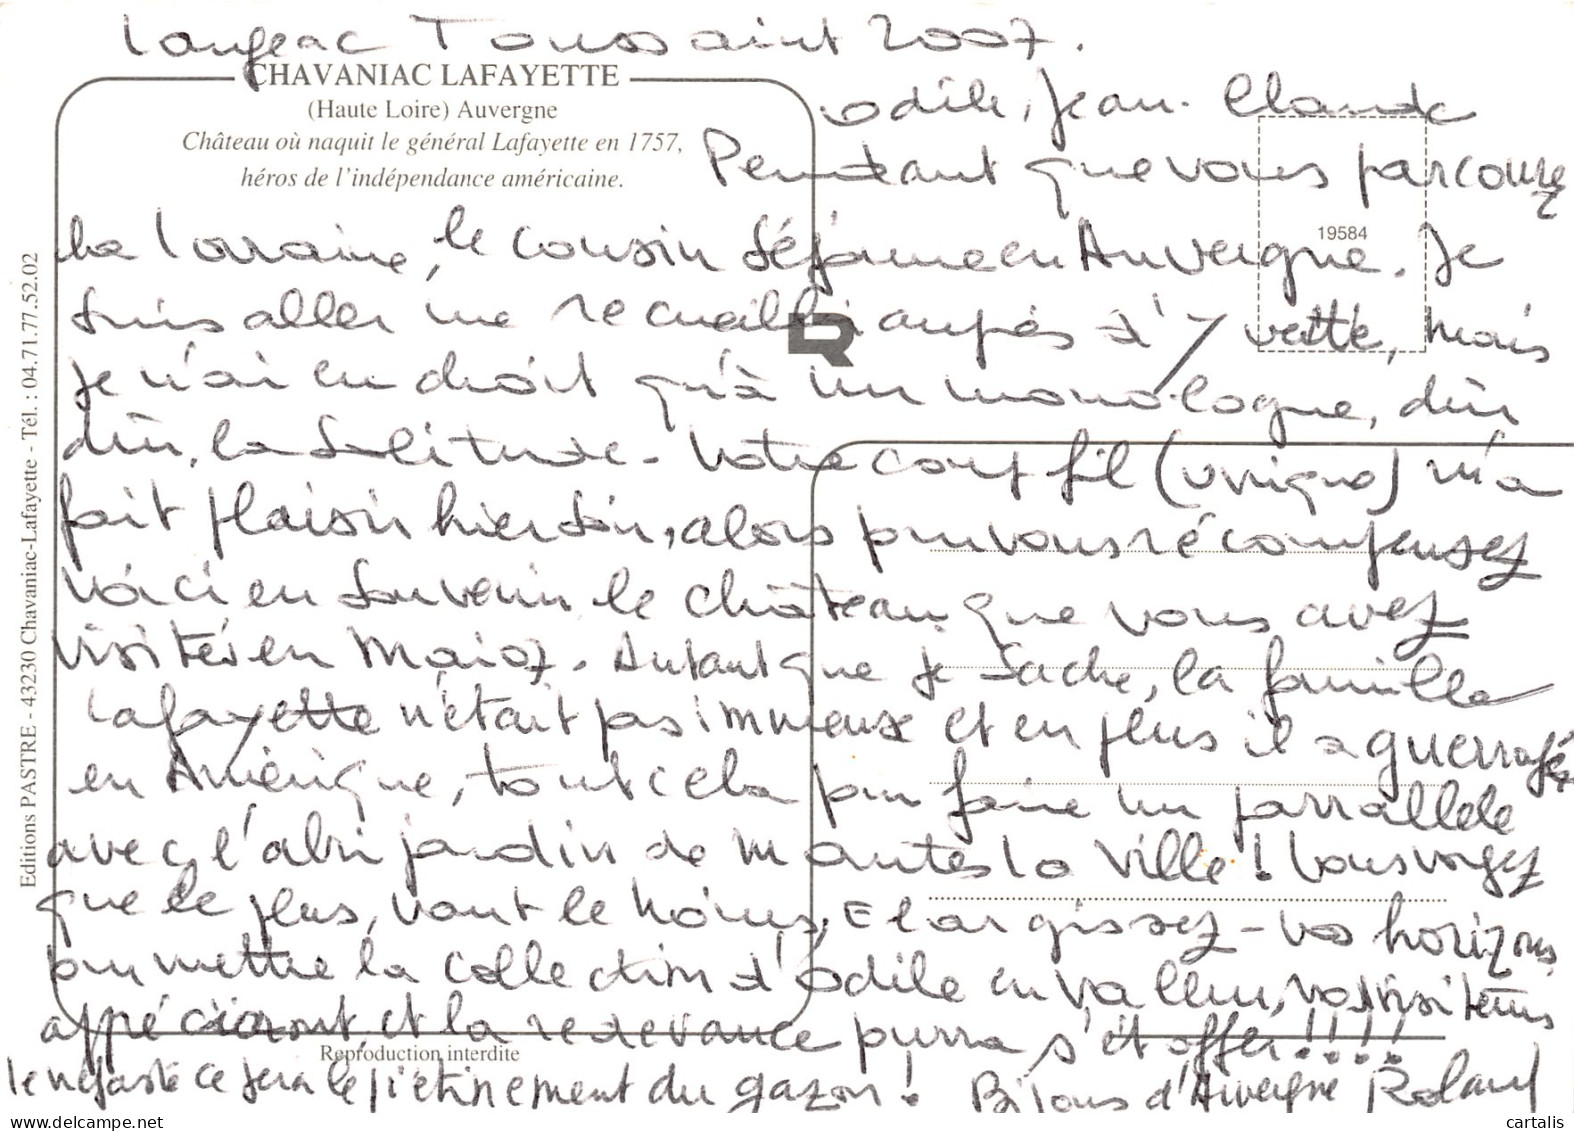 Langeac Toussaint 2007.
CHAVANIAC LAFAYETTE
(Haute Loire) Auvergne
Château où naquit le général Lafayette en 1757,
héros de l'indépendance américaine.
Odile, Jean-Claude
Pendant que vous parcourez
la Lorraine, le cousin séjourne en Auvergne. Je
suis aller me recueilli auprès d'Yvette, mais
je n'ai eu droit qu'à un monologue, dur
dur, la solitude. Votre coup fil (unique) m'a
fait plaisir hier soir, alors pour vous récompensez
voici en souvenir le château que vous avez
visiter en Mai 07. Autant que je sache, la famille
Lafayette n'était pas immense et en plus il a guerroyé
en Amérique, tout cela pour faire un parrallèle
avec l'abri jardin de Mantes la Ville! Vous voyez
que le plus, vaut le moins, Elargissez-vos horizons
pour mettre la collection d'Odile en valeur, vos visiteurs
apprécieront, et la redevance pourra s'étoffer!!!!
le néfaste ce sera le piétinement du gazon! Bisous d'Auvergne Roland
19584
Editions PASTRE - 43230 Chavaniac-Lafayette - Tél. : 04.71.77.52.02
Reproduction interdite
cartalis